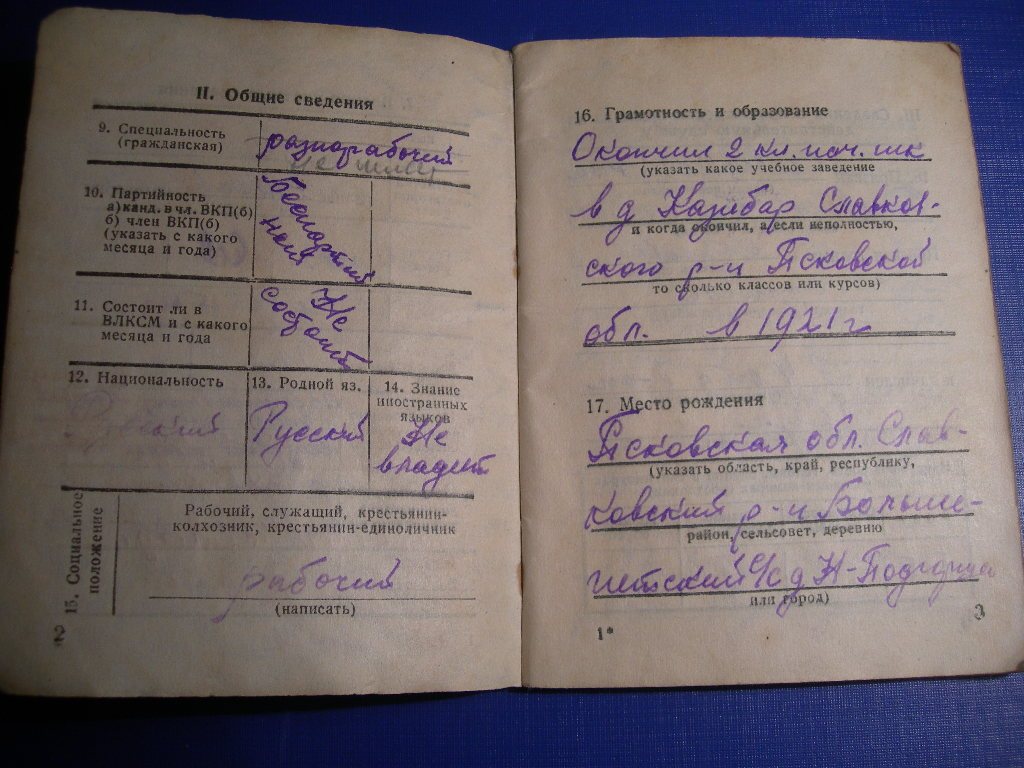 II. Общие сведения
9. Специальность
(гражданская)
разнорабочий
10. Партийность
а) канд. в чл. ВКП(б)
б) член ВКП(б)
(указать с какого
месяца и года)
Беспартий
ный
11. Состоит ли в
ВЛКСМ и с какого
месяца и года
Не
состоит
12. Национальность
Русский
13. Родной яз.
Русский
14. Знание
иностранных
языков
Не
владеет
15. Социальное
положение
Рабочий, служащий, крестьянин-
колхозник, крестьянин-единоличник
рабочий
(написать)
2
16. Грамотность и образование
Окончил 2 кл. нач. шк
(указать какое учебное заведение
в д Славков-
и когда окончил, а если неполностью,
ского р-н Псковской
то сколько классов или курсов)
обл. в 1921 г
17. Место рождения
Псковская обл. Слав-
(указать область, край, республику,
ковский р-н
район, сельсовет, деревню
с/с д Н-Подгорица
или город)
1*
3